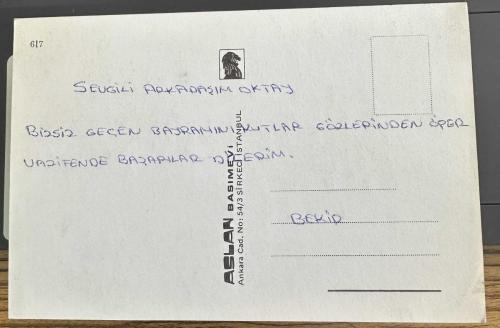 617
SEVGİLİ ARKADAŞIM OKTAY
BİZSİZ GEÇEN BAYRAMINI KUTLAR GÖZLERİNDEN ÖPER
VAZİFENDE BAŞARILAR DİLERİM.
BEKİR
ASLAN BASIMEVİ
Ankara Cad. No: 54/3 SİRKECİ İSTANBUL